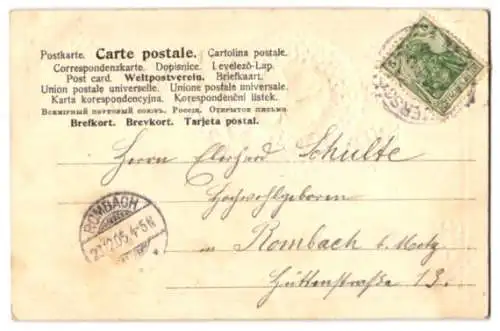 Postkarte. Carte postale. Cartolina postale.
Correspondenzkarte. Dopisnice. Levelező-Lap.
Post card. Weltpostverein. Briefkaart.
Union postale universelle. Unione postale universale.
Karta korespondencyjna. Korespondenční lístek.
Всемірный почтовый союзъ. Россія. Открытое письмо.
Brefkort. Brevkort. Tarjeta postal.
Herrn Eberhard Schulte
Hochwohlgeboren
in Rombach b. Metz
Hüttenstraße 13.
ROMBACH
05. 4-5N